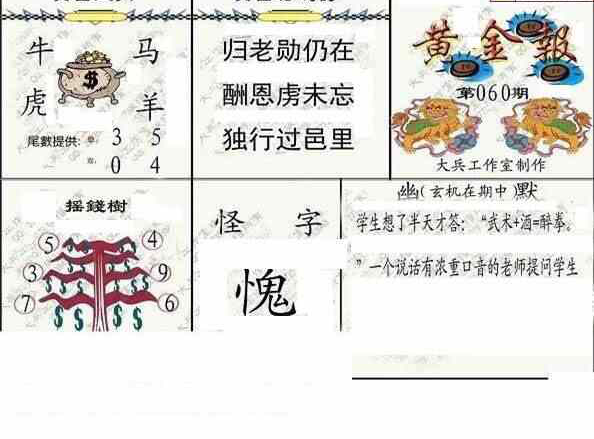 牛 马
虎 羊
尾數提供: 單: 3 5
双: 0 4
归老勋仍在
酬恩虏未忘
独行过邑里
黄金報
第060期
大兵工作室制作
摇錢樹
5 4
3 9
7 6
怪 字
愧
幽(玄机在期中)默
学生想了半天才答：“武术+酒=醉拳。
”一个说话有浓重口音的老师提问学生